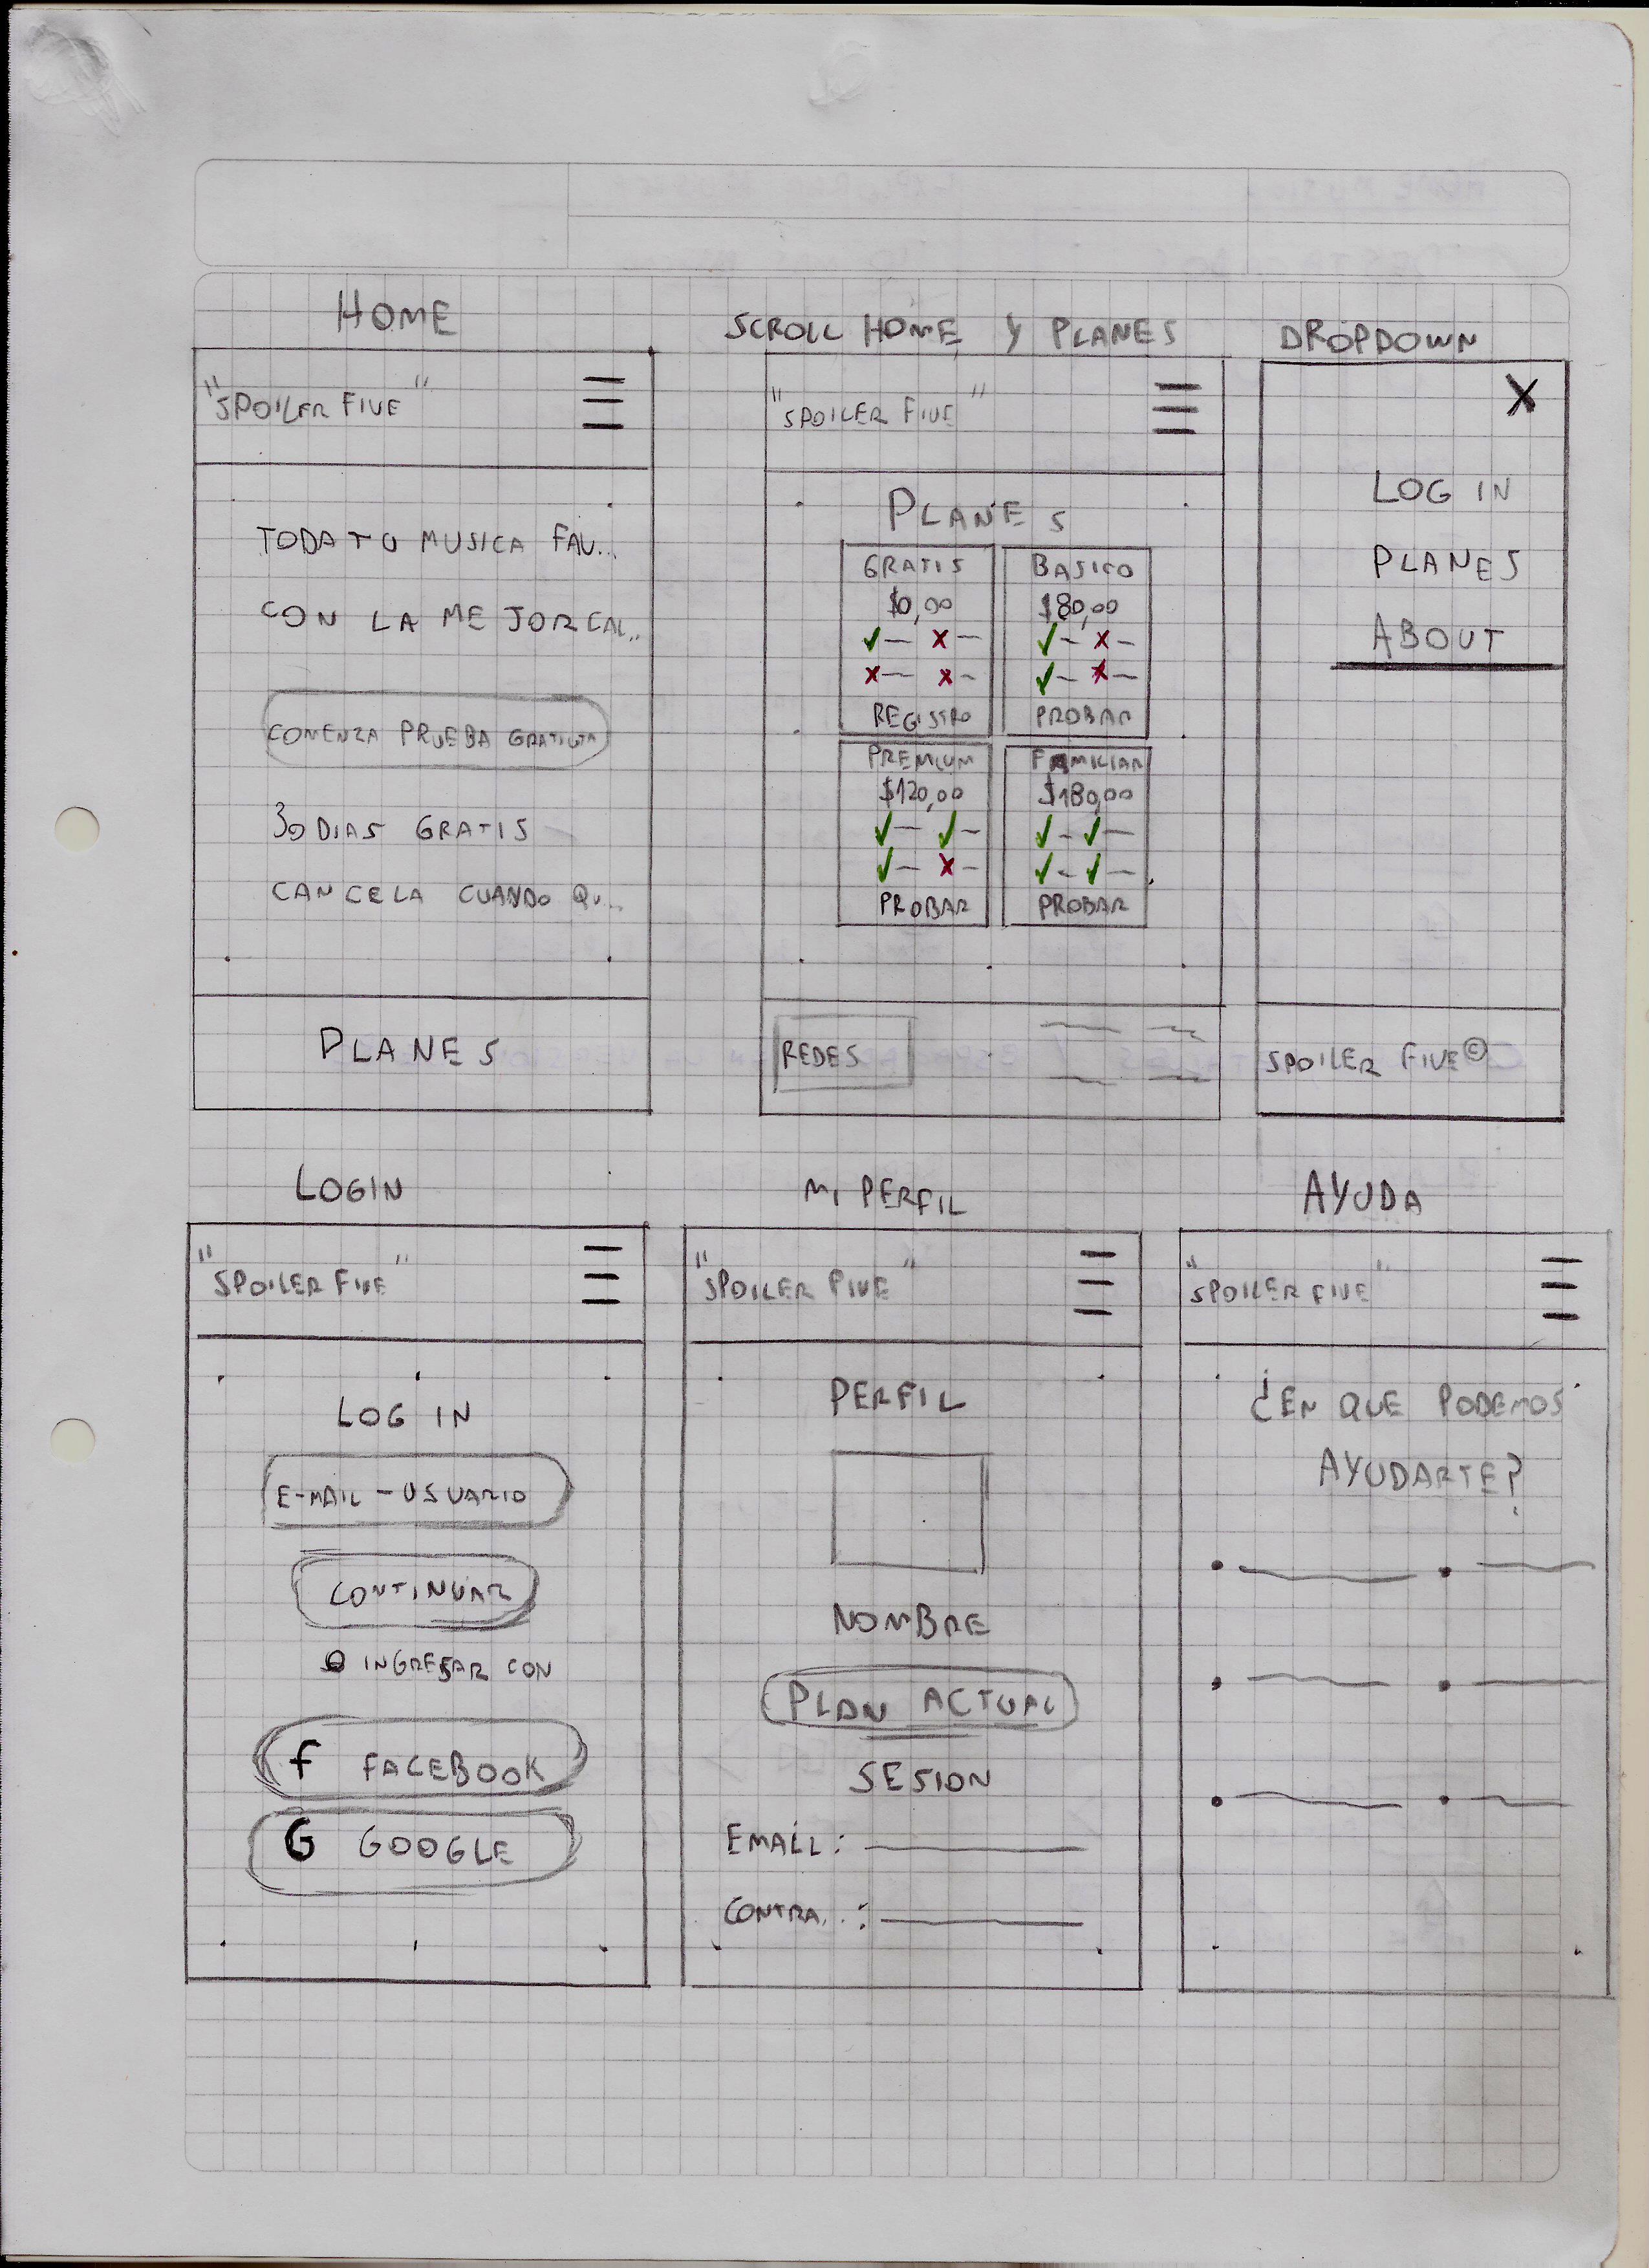 HOME
"SPOILER FIVE"
TODA TU MUSICA FAV...
CON LA MEJOR CAL..
COMENZA PRUEBA GRATUITA
30 DIAS GRATIS
CANCELA CUANDO QU...
PLANES
SCROLL HOME Y PLANES
"SPOILER FIVE"
PLANES
GRATIS
$0,00
✓— x—
x— x—
REGISTRO
BASICO
$80,00
✓— x—
✓— x—
PROBAR
PREMIUM
$120,00
✓— ✓—
✓— x—
PROBAR
FAMILIAR
$180,00
✓— ✓—
✓— ✓—
PROBAR
REDES
DROPDOWN
X
LOG IN
PLANES
ABOUT
SPOILER FIVE©
LOGIN
"SPOILER FIVE"
LOG IN
E-MAIL - USUARIO
CONTINUAR
O INGRESAR CON
f FACEBOOK
G GOOGLE
MI PERFIL
"SPOILER FIVE"
PERFIL
NOMBRE
PLAN ACTUAL
SESION
EMAIL:
CONTRA..:
AYUDA
"SPOILER FIVE"
¿EN QUE PODEMOS
AYUDARTE?